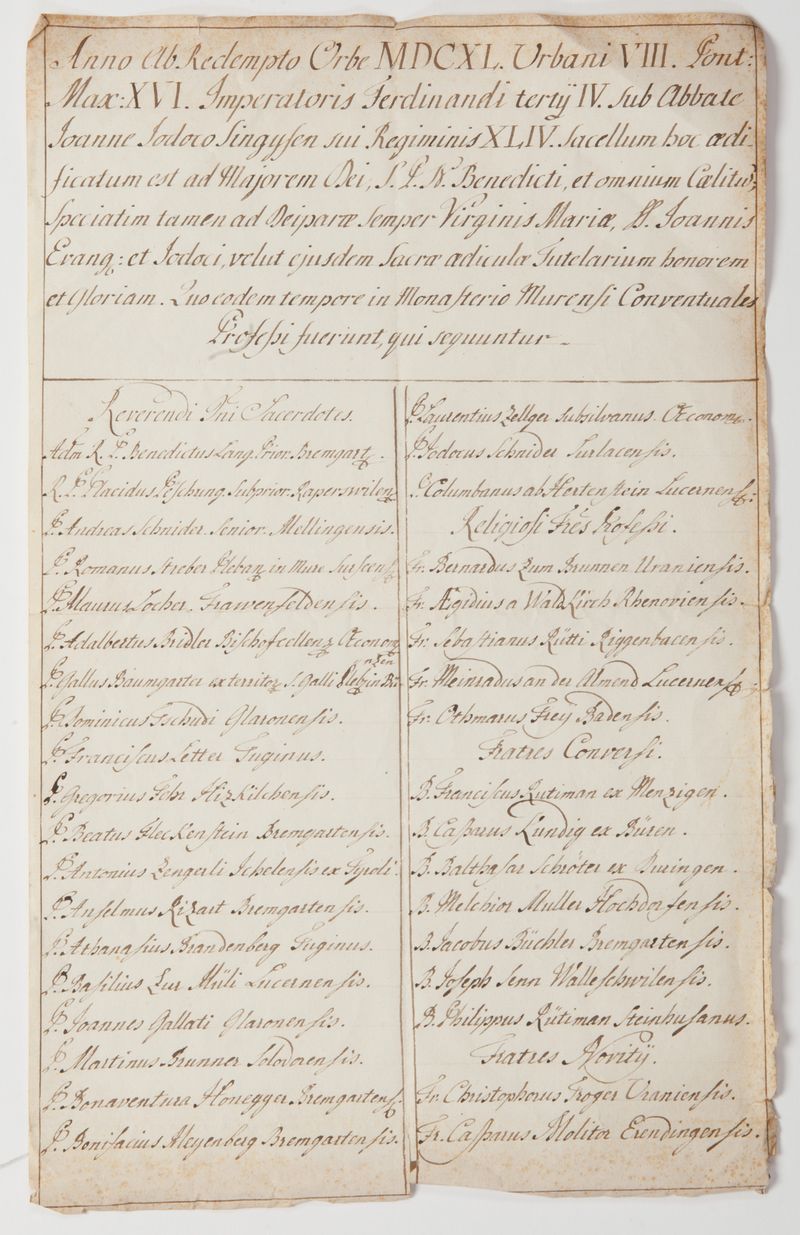 Anno Ab Redempto Orbe MDCXL. Urbani VIII. Pont:
Max: XVI. Imperatoris Ferdinandi tertij IV. sub Abbate
Joanne Jodoco Singysen sui Regiminis XLIV. sacellum hoc ædi-
ficatum est ad Majorem Dei, S. P. N. Benedicti, et omnium Cælitum
Speciatim tamen ad Deiparæ Semper Virginis Mariæ, SS. Joannis
Evang: et Jodoci, velut ejusdem Sacræ ædiculæ Tutelarium honorem
et Gloriam. Quo eodem tempore in Monasterio Murensi Conventuales
Professi fuerunt, qui sequuntur_
Reverendi Dni Sacerdotes.
Adm R. P. Benedictus Lang Prior Bremgart.
R. P. Placidus Subprior Raperswilen
P. Andreas Schnider Senior Mellingensis.
P. Romanus Streber Pleban in Mure Surseens
P. Maurus Locher Frawenfeldensis.
P. Adalbertus Bridler Bischofcellenz Œconom
P. Gallus Baumgarter ex territor S. Galli Pleb in
P. Dominicus Tschudi Glaronensis.
P. Franciscus Letter Tuginus.
P. Gregorius Fehr Hizkilchensis.
P. Beatus Fleckenstein Bremgartensis.
P. Antonius Zengerli Ischelensis ex Tyroli.
P. Anselmus Rizart Bremgartensis.
P. Athanasius Brandenberg Tuginus.
P. Basilius Zur Müli Lucernensis.
P. Joannes Gallati Glaronensis.
P. Martinus Brunner Solodorensis.
P. Bonaventura Honegger Bremgartens.
P. Bonifacius Meyenberg Bremgartensis.
P. Laurentius Zellger subsilvanus Œconom.
P. Jodocus Schnider Surlacensis.
P. Columbanus ab Hertenstein Lucernens:
Religiosi Frēs Professi.
Fr. Bernardus Zum Brunnen Uraniensis.
Fr. Ægidius a Waldkirch Rhenoviensis.
Fr. Sebastianus Rütti Riggenbacensis.
Fr. Meinradus an der Almend Lucernens:
Fr. Othmarus Frey Badensis.
Fratres Conversi.
B. Franciscus Rutiman ex Menzigen.
B. Casparus Kundig ex Büren.
B. Balthasar Schröter ex
B. Melchior Muller Hochdorfensis.
B. Jacobus Büchler Bremgartensis.
B. Joseph Senn Walleschwilensis.
B. Philippus Rütiman Steinhusanus.
Fratres Novitij.
Fr. Christophorus Troger Uraniensis.
Fr. Casparus Molitor Erendingensis.